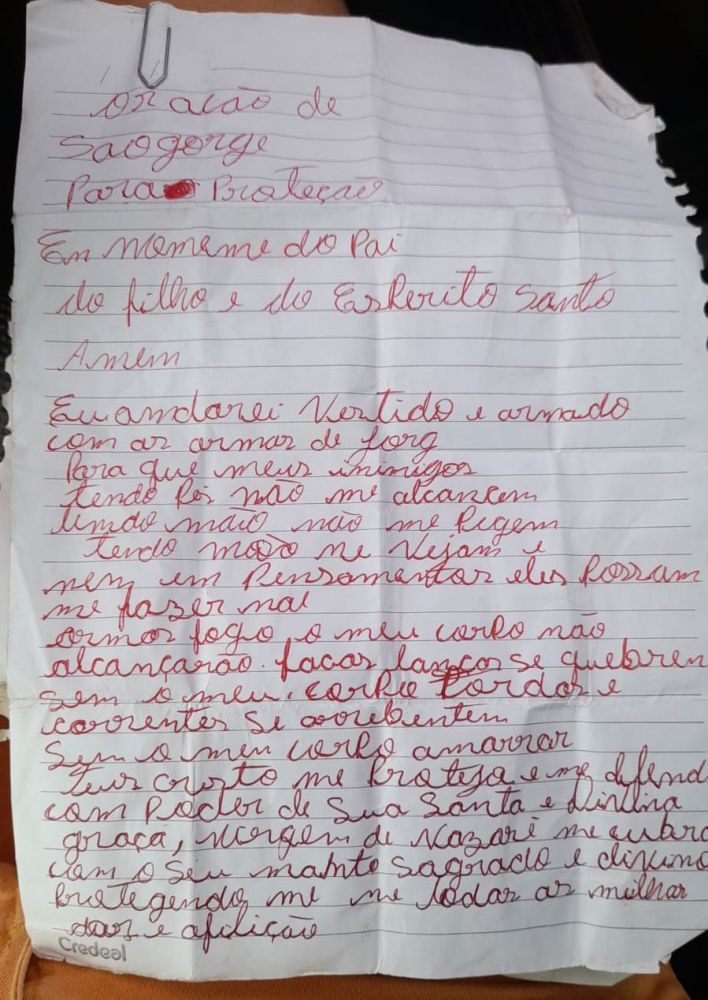 oracão de
Saogorge
Para Proteção
En Nomeme do Pai
do filho e do Esperito Santo
Amem
Eu andarei Vertido e armado
com ar armar de jorg
Para que meus inimigos
tendo Pés não me alcancem
tendo mão não me Pegem
tendo não me Vejam e
nem em Pensamentos eles Possam
me fazer mal
armas fogo o meu corpo não
alcançarão. facas lanças se quebren
sem o meu. corpo Cordas e
correntes se arrebentem
Sem o meu corpo amarrar
Jeus cristo me Proteja e me defend
com Poder de Sua Santa e Divina
graça, Virgem de Nazaré me cubra
com o Seu manto Sagrado e divino
Protegendo me me todas as minhar
dores e aflição
Credeal